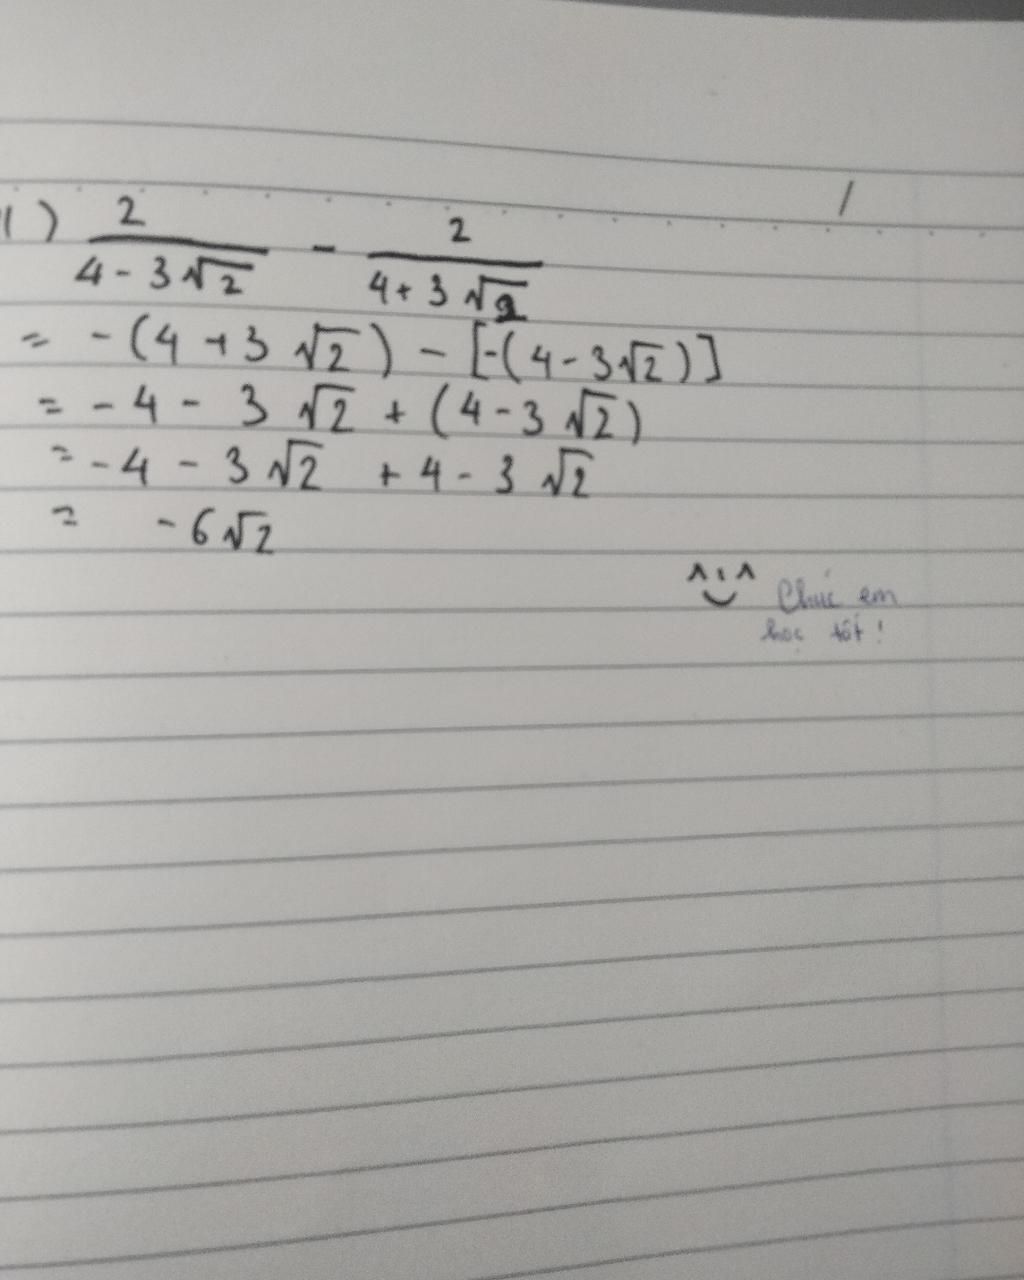 1) 2/(4 - 3√2) - 2/(4 + 3√2)
= - (4 + 3√2) - [-(4 - 3√2)]
= - 4 - 3√2 + (4 - 3√2)
= - 4 - 3√2 + 4 - 3√2
= - 6√2
Chúc em
học tốt!